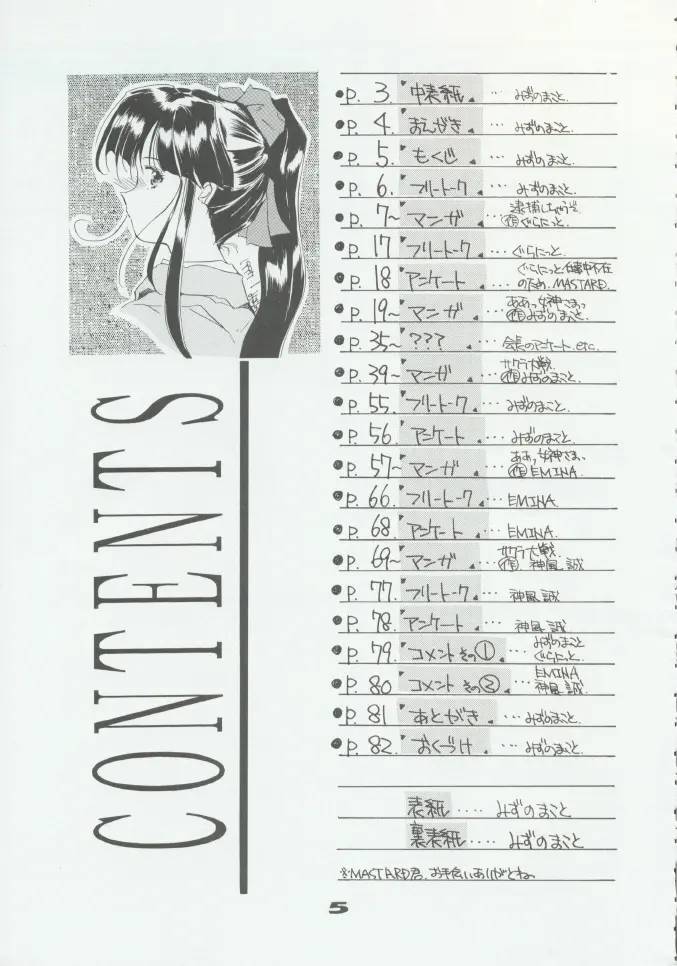 CONTENTS
p. 3. 中表紙 … みずのまこと.
p. 4. まえがき … みずのまこと.
p. 5. もくじ … みずのまこと.
p. 6. フリートーク … みずのまこと.
p. 7~ マンガ … 逮捕しちゃうぞ 作 ぐらにっと.
p. 17. フリートーク … ぐらにっと.
p. 18. アンケート … ぐらにっと仕事中不在のため、MASTARD.
p. 19~ マンガ … ああっ女神さまっ 作 みずのまこと.
p. 35~ ??? … 会長のアンケート. etc.
p. 39~ マンガ … サクラ大戦 作 みずのまこと.
p. 55. フリートーク … みずのまこと.
p. 56. アンケート … みずのまこと.
p. 57~ マンガ … ああっ女神さまっ 作 EMINA.
p. 66. フリートーク … EMINA.
p. 68. アンケート … EMINA.
p. 69~ マンガ … サクラ大戦. 作. 神風 誠
p. 77. フリートーク … 神風 誠
p. 78. アンケート … 神風 誠
p. 79. コメント その① … みずのまこと ぐらにっと.
p. 80 コメント その② … EMINA, 神風 誠.
p. 81 あとがき … みずのまこと.
p. 82. おくづけ … みずのまこと.
表紙 ‥‥ みずのまこと
裏表紙 ‥‥ みずのまこと
※MASTARD君、お手伝いありがとね。
5